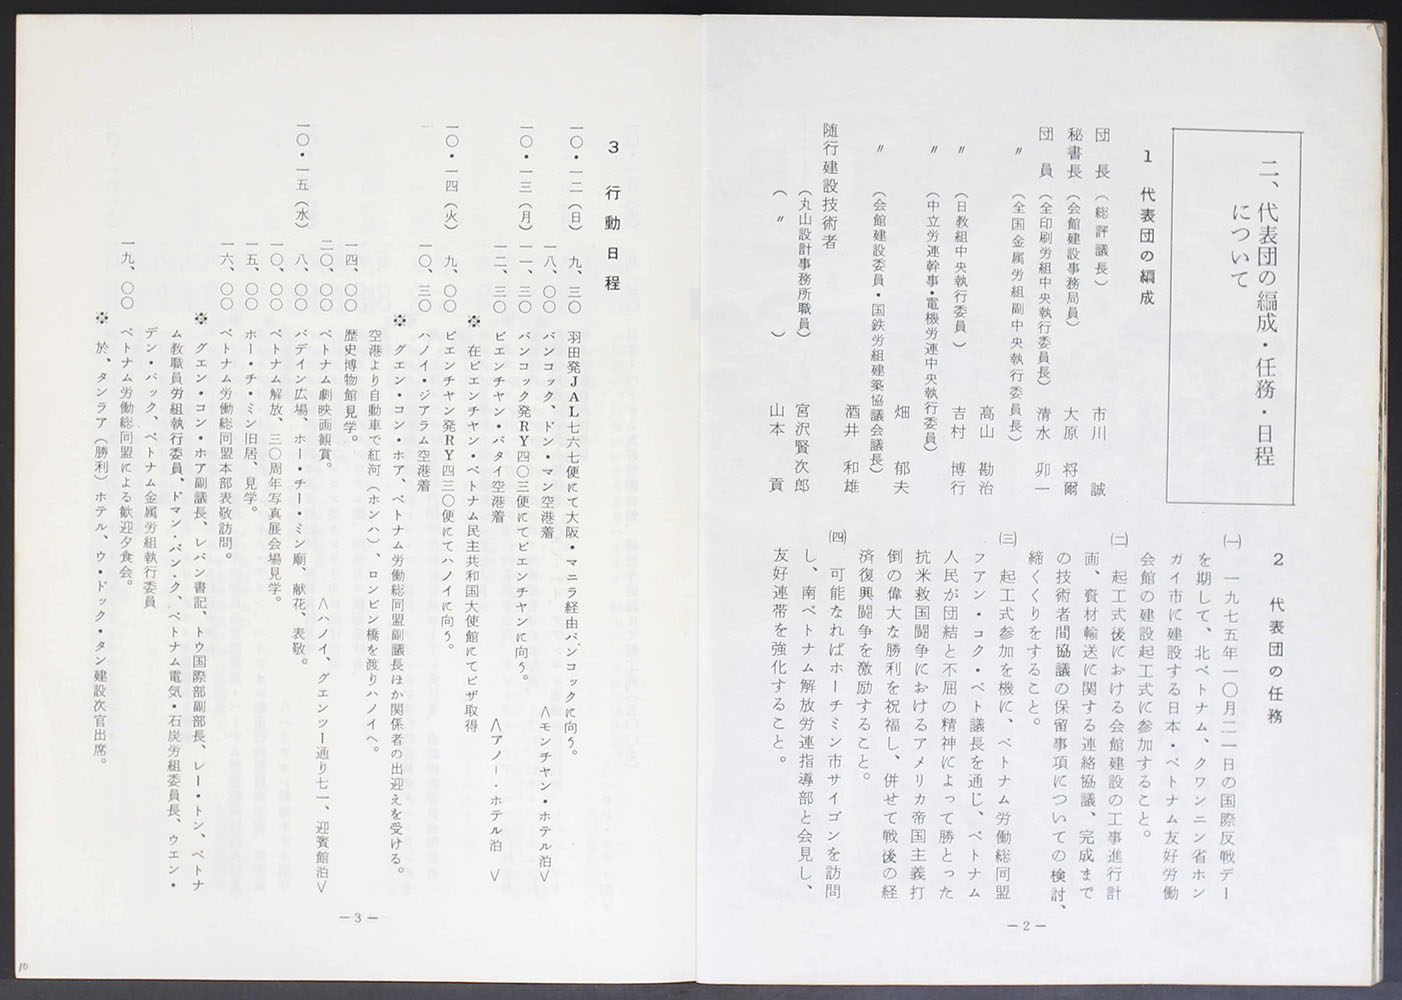 二、代表団の編成・任務・日程
について
1　代表団の編成
団　長（総評議長）　市川　誠
秘書長（会館建設事務局員）　大原　将爾
団　員（全印刷労組中央執行委員長）　清水　卯一
〃（全国金属労組副中央執行委員長）　高山　勘治
〃（日教組中央執行委員）　吉村　博行
〃（中立労連幹事・電機労連中央執行委員）　畑　郁夫
〃（会館建設委員・国鉄労組建築協議会議長）　酒井　和雄
随行建設技術者
（丸山設計事務所職員）　宮沢賢次郎
（　〃　）　山本　貢
2　代表団の任務
㈠　一九七五年一〇月二一日の国際反戦デー
を期して、北ベトナム、クワンニン省ホン
ガイ市に建設する日本・ベトナム友好労働
会館の建設起工式に参加すること。
㈡　起工式後における会館建設の工事進行計
画、資材輸送に関する連絡協議、完成まで
の技術者間協議の保留事項についての検討、
締くくりをすること。
㈢　起工式参加を機に、ベトナム労働総同盟
フアン・コク・ベト議長を通じ、ベトナム
人民が団結と不屈の精神によって勝とった
抗米救国闘争におけるアメリカ帝国主義打
倒の偉大な勝利を祝福し、併せて戦後の経
済復興闘争を激励すること。
㈣　可能なればホーチミン市サイゴンを訪問
し、南ベトナム解放労連指導部と会見し、
友好連帯を強化すること。
－2－
3　行動日程
一〇・一二（日）　九、三〇　羽田発JAL七六七便にて大阪・マニラ経由バンコックに向う。
一八、〇〇　バンコック、ドン・マン空港着　＜モンチャン・ホテル泊＞
一〇・一三（月）　一一、三〇　バンコック発RY四〇三便にてビエンチャンに向う。
一二、三〇　ビエンチャン・バタイ空港着　＜アノー・ホテル泊　＞
※　在ビエンチャン・ベトナム民主共和国大使館にてビザ取得
一〇・一四（火）　九、〇〇　ビエンチャン発RY四三〇便にてハノイに向う。
一〇、三〇　ハノイ・ジアラム空港着
※　グエン・コン・ホア、ベトナム労働総同盟副議長ほか関係者の出迎えを受ける。
空港より自動車で紅河（ホンハ）、ロンビン橋を渡りハノイへ。
一四、〇〇　歴史博物館見学。
二〇、〇〇　ベトナム劇映画観賞。　＜ハノイ、グエンツー通り七一、迎賓館泊＞
一〇・一五（水）　八、〇〇　バデイン広場、ホー・チー・ミン廟、献花、表敬。
一〇、〇〇　ベトナム解放、三〇周年写真展会場見学。
一五、〇〇　ホー・チ・ミン旧居、見学。
一六、〇〇　ベトナム労働総同盟本部表敬訪問。
※　グエン・コン・ホア副議長、レバン書記、トウ国際部副部長、レー・トン、ベトナ
ム教職員労組執行委員、ドマン・バン・ク、ベトナム電気・石炭労組委員長、ウエン・
デン・バック、ベトナム金属労組執行委員
一九、〇〇　ベトナム労働総同盟による歓迎夕食会。
※　於、タンラア（勝利）ホテル、ウ・ドック・タン建設次官出席。
－3－
10